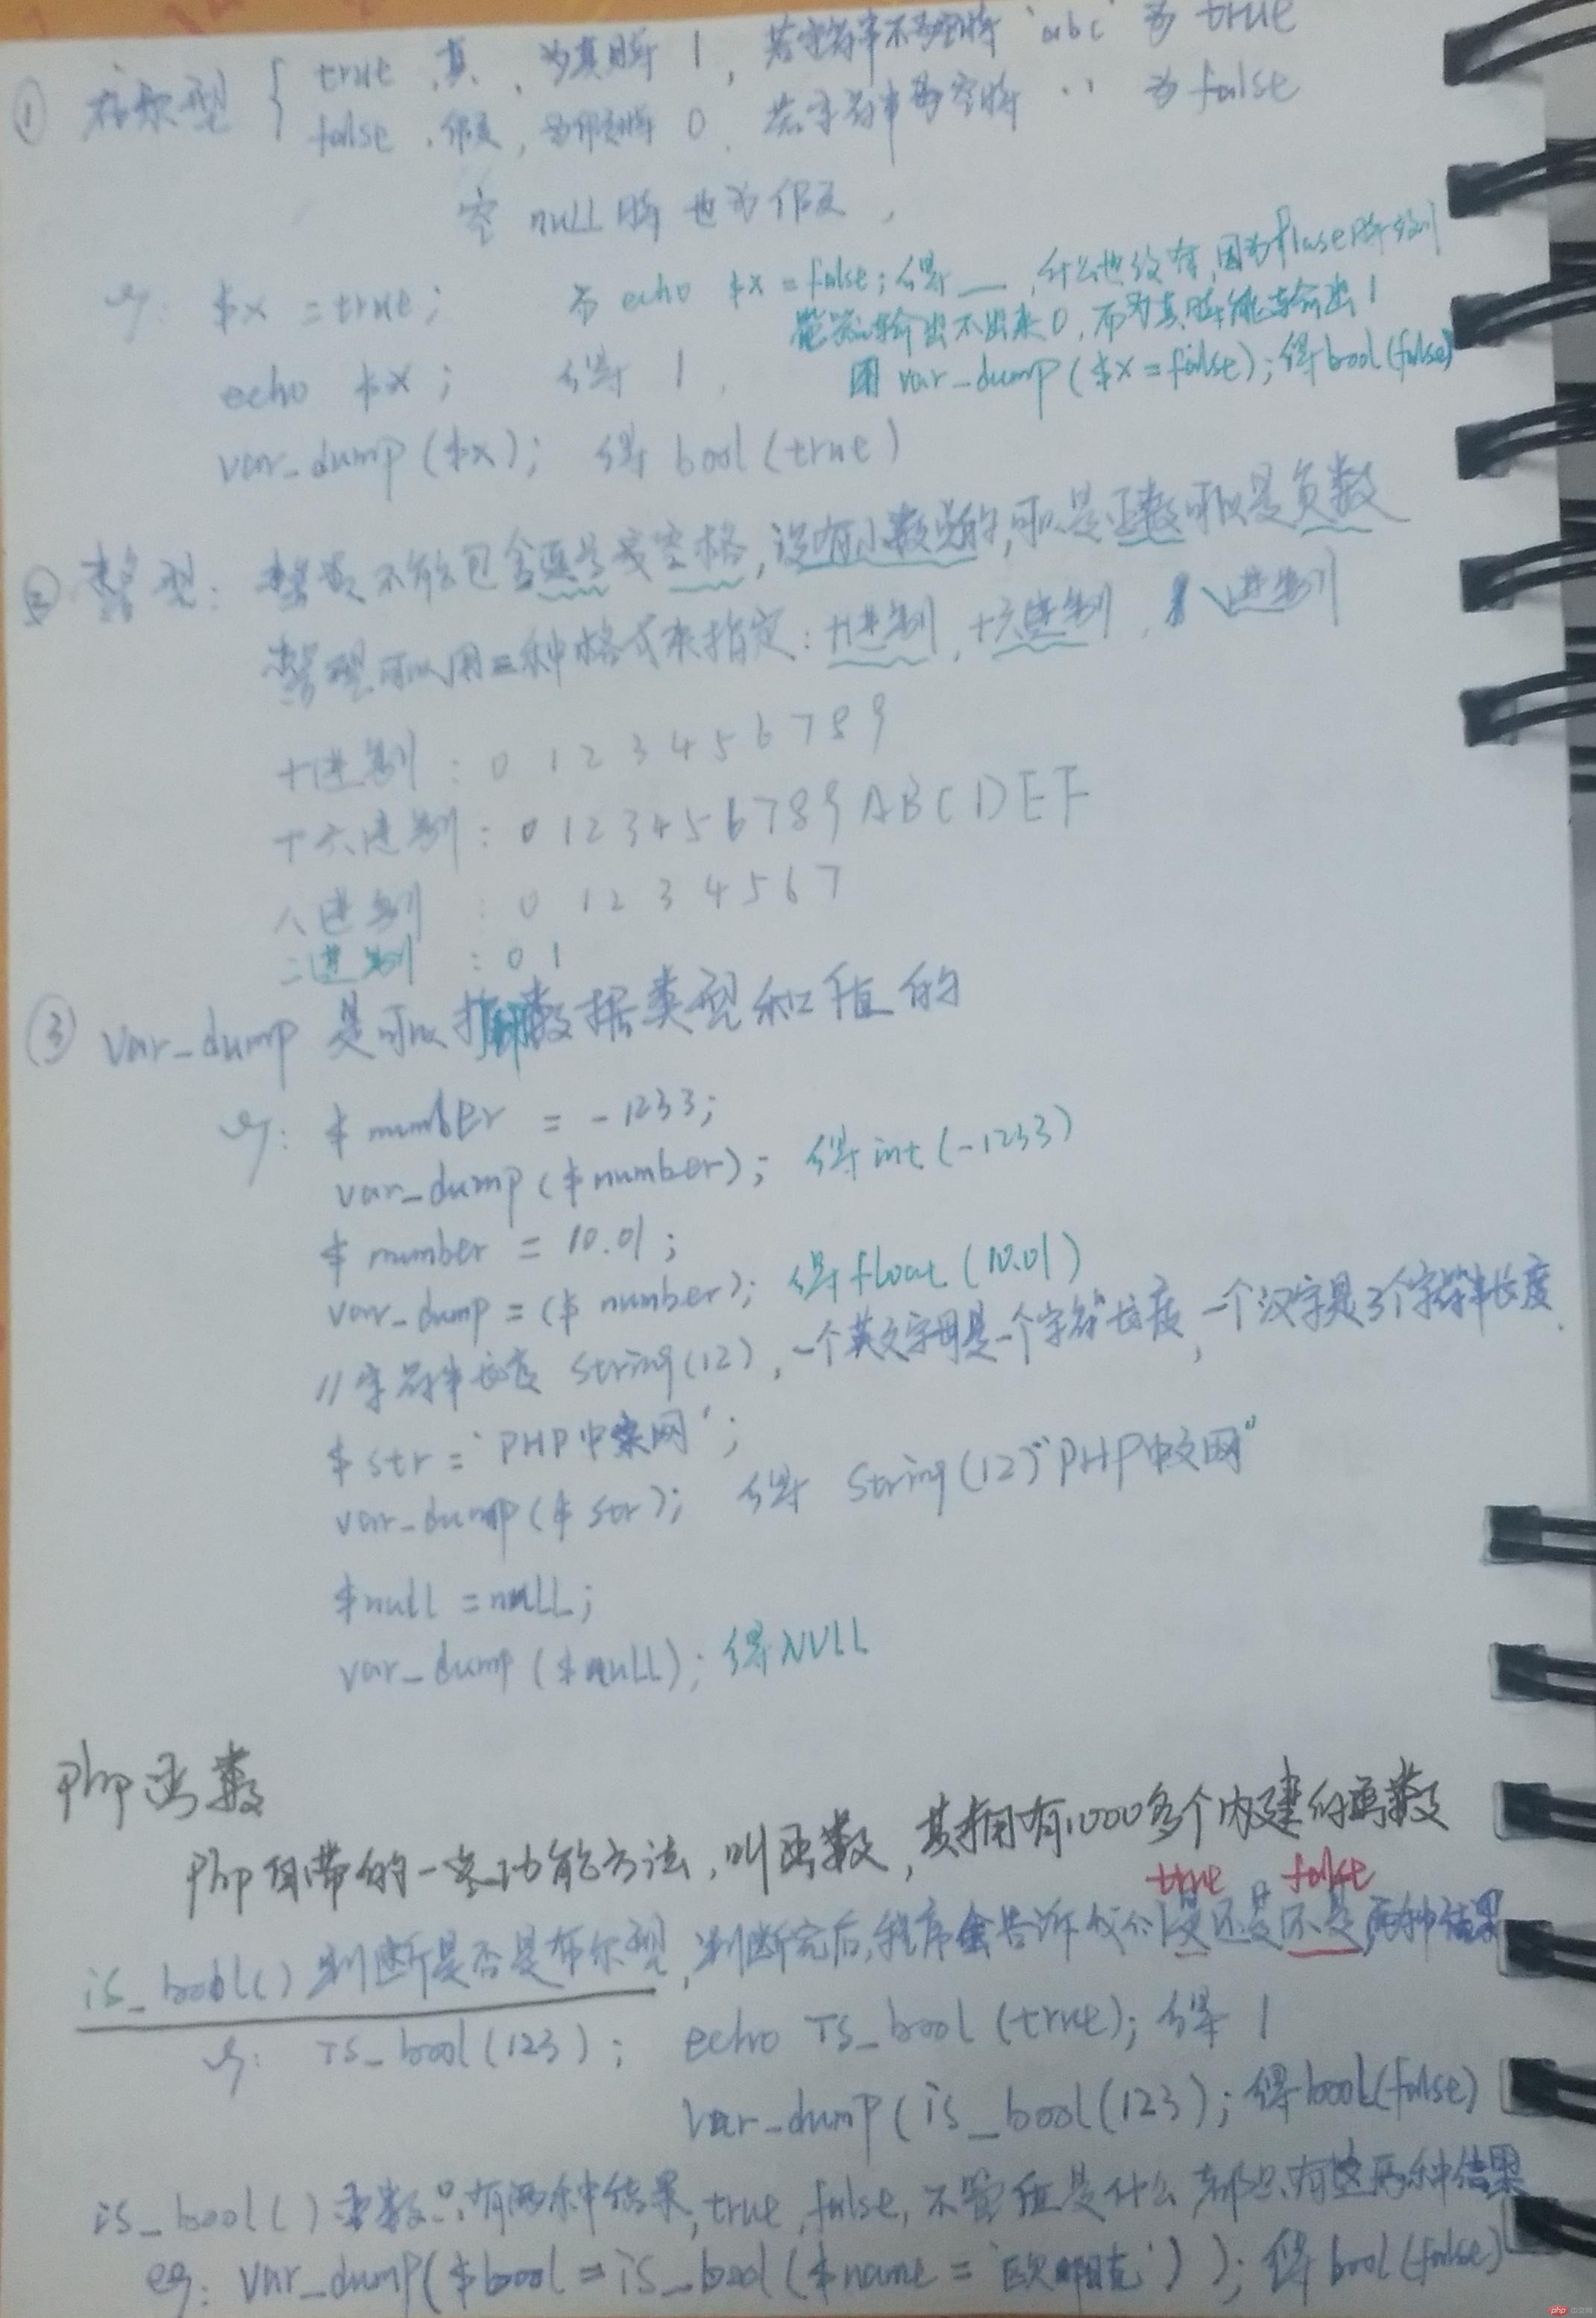 ① 布尔型 { true ,真 , 为真时 1 , 若字符串不为空时 'abc' 为 true
false ,假 , 为假时 0 , 若字符串为空时 '' 为 false
空 null时 也为假 ,
eg: $x = true;
而 echo $x = false; 得 __ , 什么也没有, 因为flase时
输出不出来0, 而为真时能够输出1
echo $x; 得 1.
用 var_dump($x=false); 得bool(false)
var_dump($x); 得 bool(true)
② 整型: 整数不能包含逗号或空格, 没有小数点的, 可以是正数可以是负数
整型可以用三种格式来指定: 十进制, 十六进制, 八进制
十进制 : 0 1 2 3 4 5 6 7 8 9
十六进制 : 0 1 2 3 4 5 6 7 8 9 A B C D E F
八进制 : 0 1 2 3 4 5 6 7
二进制 : 0 1
③ var_dump 是可以打印数据类型和值的
eg: $number = -1233;
var_dump($number); 得int(-1233)
$number = 10.01;
var_dump=($number); 得float(10.01)
//字符串长度 string(12), 一个英文字母是一个字符长度, 一个汉字是3个字符串长度.
$str = 'PHP中文网';
var_dump($str); 得 string(12)"PHP中文网"
$null = null;
var_dump($null); 得NULL
php函数
php自带的一些功能方法, 叫函数, 其拥有1000多个内建的函数
true false
is_bool() 判断是否是布尔型, 判断完后, 程序会告诉我们是还是不是, 两种结果
eg: Is_bool(123); echo Is_bool(true); 得 1
var_dump(is_bool(123); 得bool(false)
is_bool() 函数只有两种结果, true, false, 不管值是什么 都只有这两种结果
eg: var_dump($bool = is_bool($name = '欧阳克')); 得 bool(false)
php